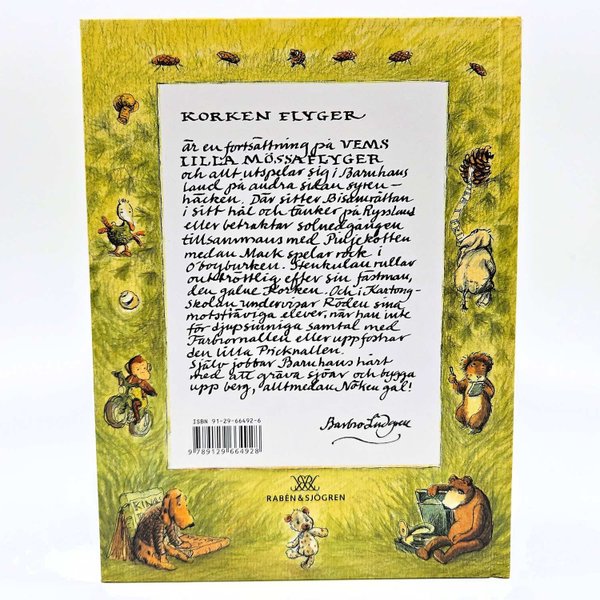 KORKEN FLYGER
är en fortsättning på VEMS
LILLA MÖSSA FLYGER
och allt utspelar sig i Barnhans
land på andra sidan syren-
häcken. Där sitter Bisamråttan
i sitt hål och tänker på Ryssland
eller betraktar solnedgången
tillsammans med Pinjekotten
medan Mack spelar rock i
O'boyburken. Stenkulan rullar
outtröttlig efter sin fästman,
den galne Korken. Och i Kartong-
skolan undervisar Röden sina
motsträviga elever, när han inte
för djupsinniga samtal med
Farbrornallen eller uppfostrar
den lilla Pricknallen.
Själv jobbar Barnhans hårt
med att gräva sjöar och bygga
upp berg, alltmedan Nöken gal!
Barbro Lindgren
ISBN 91-29-66492-6
9 789129 664928
RABÉN & SJÖGREN
KINA